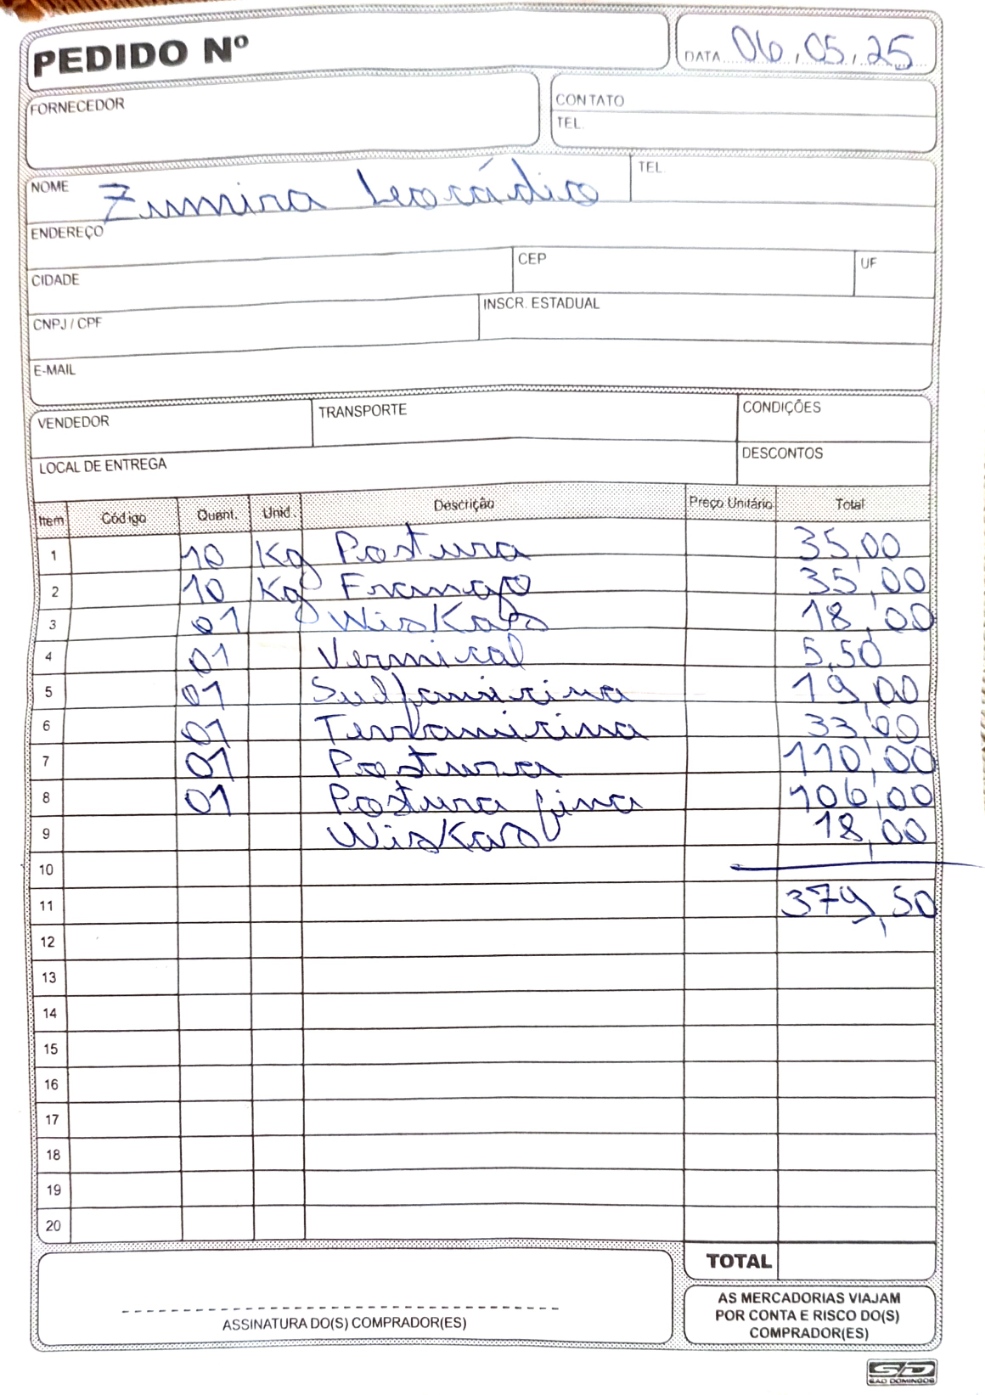 PEDIDO Nº
DATA 06,05,25
FORNECEDOR
CONTATO
TEL.
NOME Zumira Leocádico
TEL.
ENDEREÇO
CIDADE
CEP
UF
CNPJ / CPF
INSCR. ESTADUAL
E-MAIL
VENDEDOR
TRANSPORTE
CONDIÇÕES
LOCAL DE ENTREGA
DESCONTOS
Item Código Quant. Unid. Descrição Preço Unitário Total
1 10 Kg Postura 35,00
2 10 Kg Frango 35,00
3 01 Wiskas 18,00
4 01 Vermical 5,50
5 01 Sulfamicina 19,00
6 01 Terramicina 33,00
7 01 Postura 110,00
8 01 Postura fina 106,00
9 Wiskas 18,00
10
11 379,50
12
13
14
15
16
17
18
19
20
TOTAL
ASSINATURA DO(S) COMPRADOR(ES)
AS MERCADORIAS VIAJAM
POR CONTA E RISCO DO(S)
COMPRADOR(ES)
SD
SÃO DOMINGOS